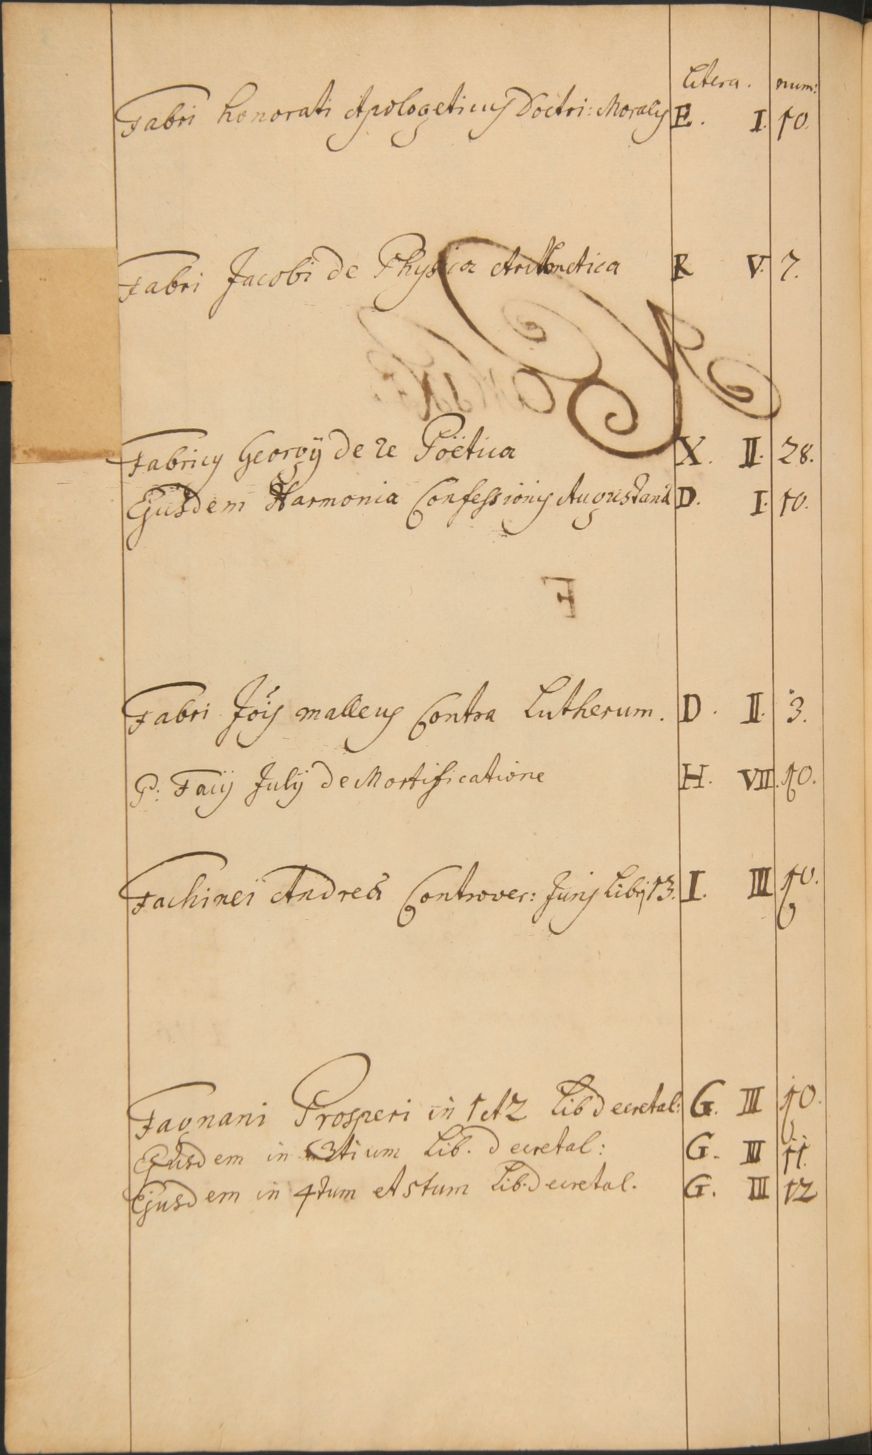 litera. num:
Fabri Honorati Apologeticus Doctri: Moralis E. I. 10.
Fabri Jacobi de Physica Arithmetica R V. 7.
Fabricy Georgÿ de re Poëtica X. II. 28.
Ejusdem Harmonia Confessionis Augustanæ D. I. 10.
F
Fabri Jõis malleus Contra Lutherum. D. II. 3.
P: Facÿ Julÿ de Mortificatione H. VII. 10.
Fachinei Andreæ Controver: Juris Libri 13. I. III 10.
Fagnani Prosperi in 1 et 2 Lib decretal: G. III 10.
Ejusdem in 3tium Lib. decretal: G. III 11.
Ejusdem in 4tum et 5tum Lib. decretal. G. III 12